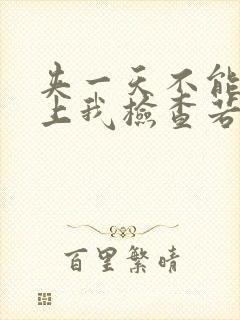 失一天不能
上我檢查若
百里繁晴